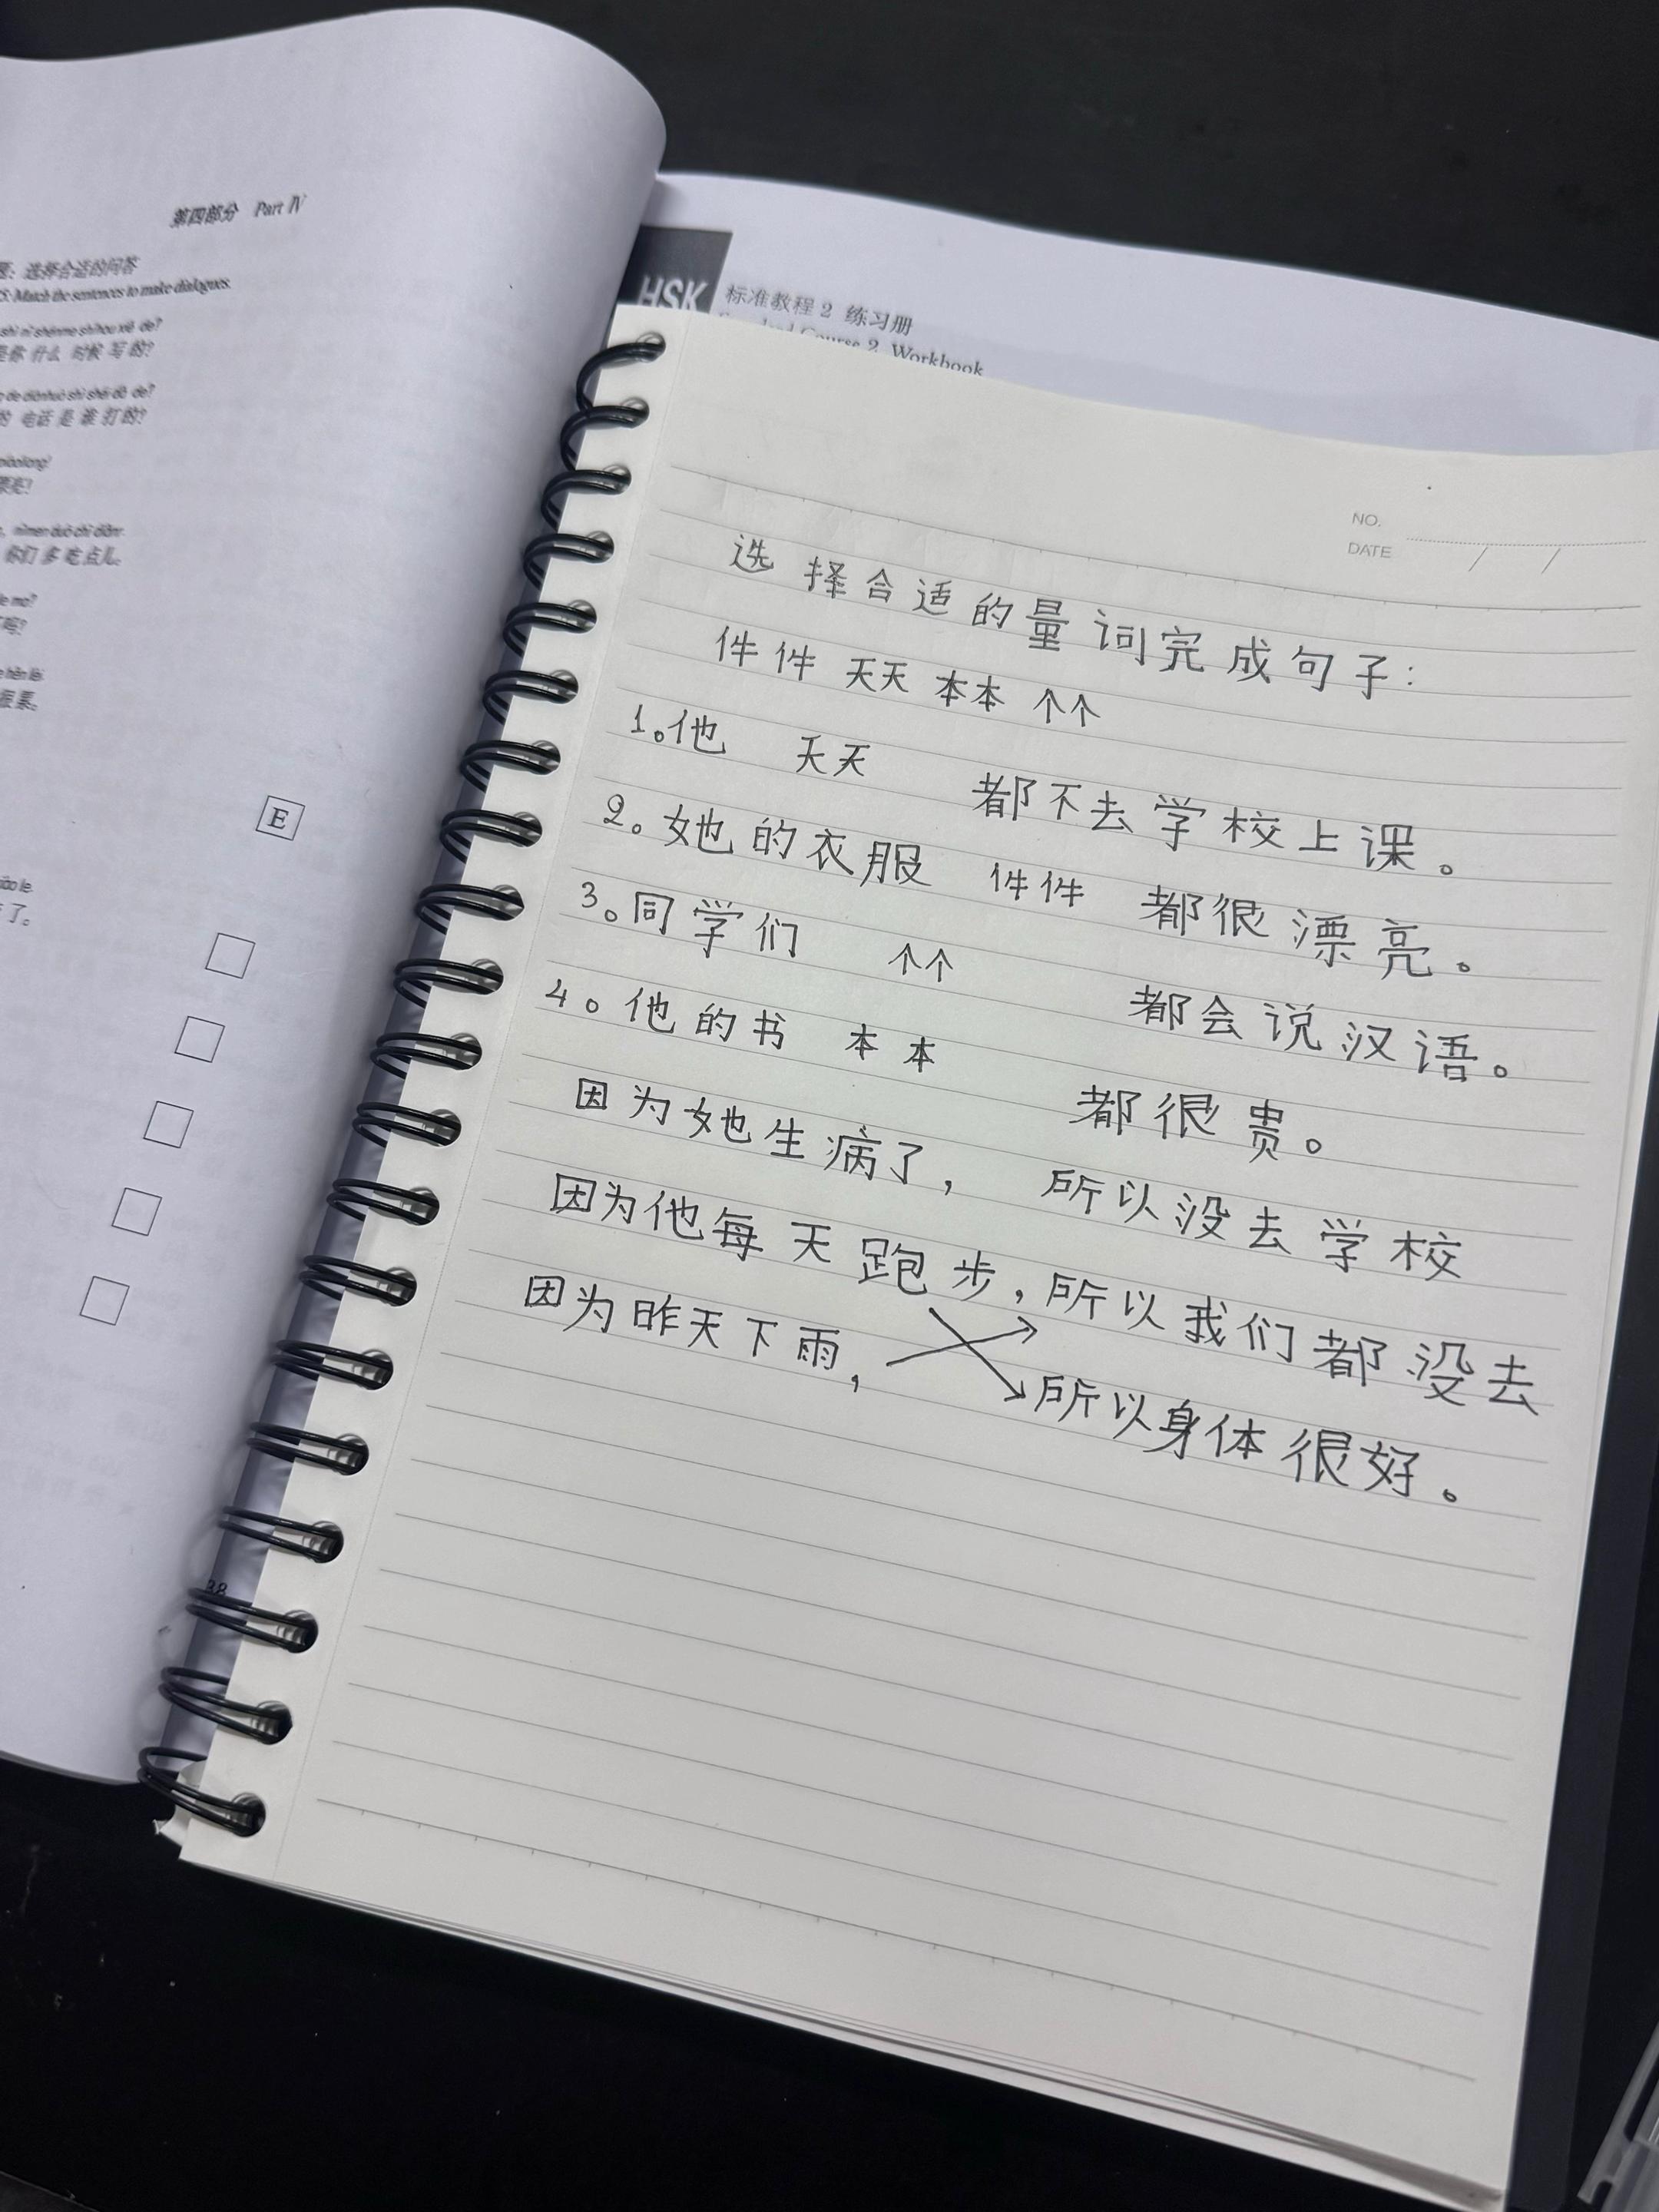 第四部分 Part Ⅳ
选择合适的问答
Match the sentences to make dialogues.
shì nǐ shénme shíhou xiě de?
是你 什么 时候 写 的?
de diànhuà shì shéi dǎ de?
的 电话 是 谁 打 的?
piàoliang!
漂亮!
nǐmen duō chī diǎnr.
你们 多 吃 点儿.
ma?
吗?
hěn lèi.
很累。
E
le.
了。
38
HSK 标准教程 2 练习册
Standard Course 2 Workbook
NO.
DATE / /
选择合适的量词完成句子:
件件 天天 本本 个个
1。他 天天 都不去学校上课。
2。她的衣服 件件 都很漂亮。
3。同学们 个个 都会说汉语。
4。他的书 本本 都很贵。
因为她生病了, 所以没去学校
因为他每天跑步,所以我们都没去
因为昨天下雨, 所以身体很好。